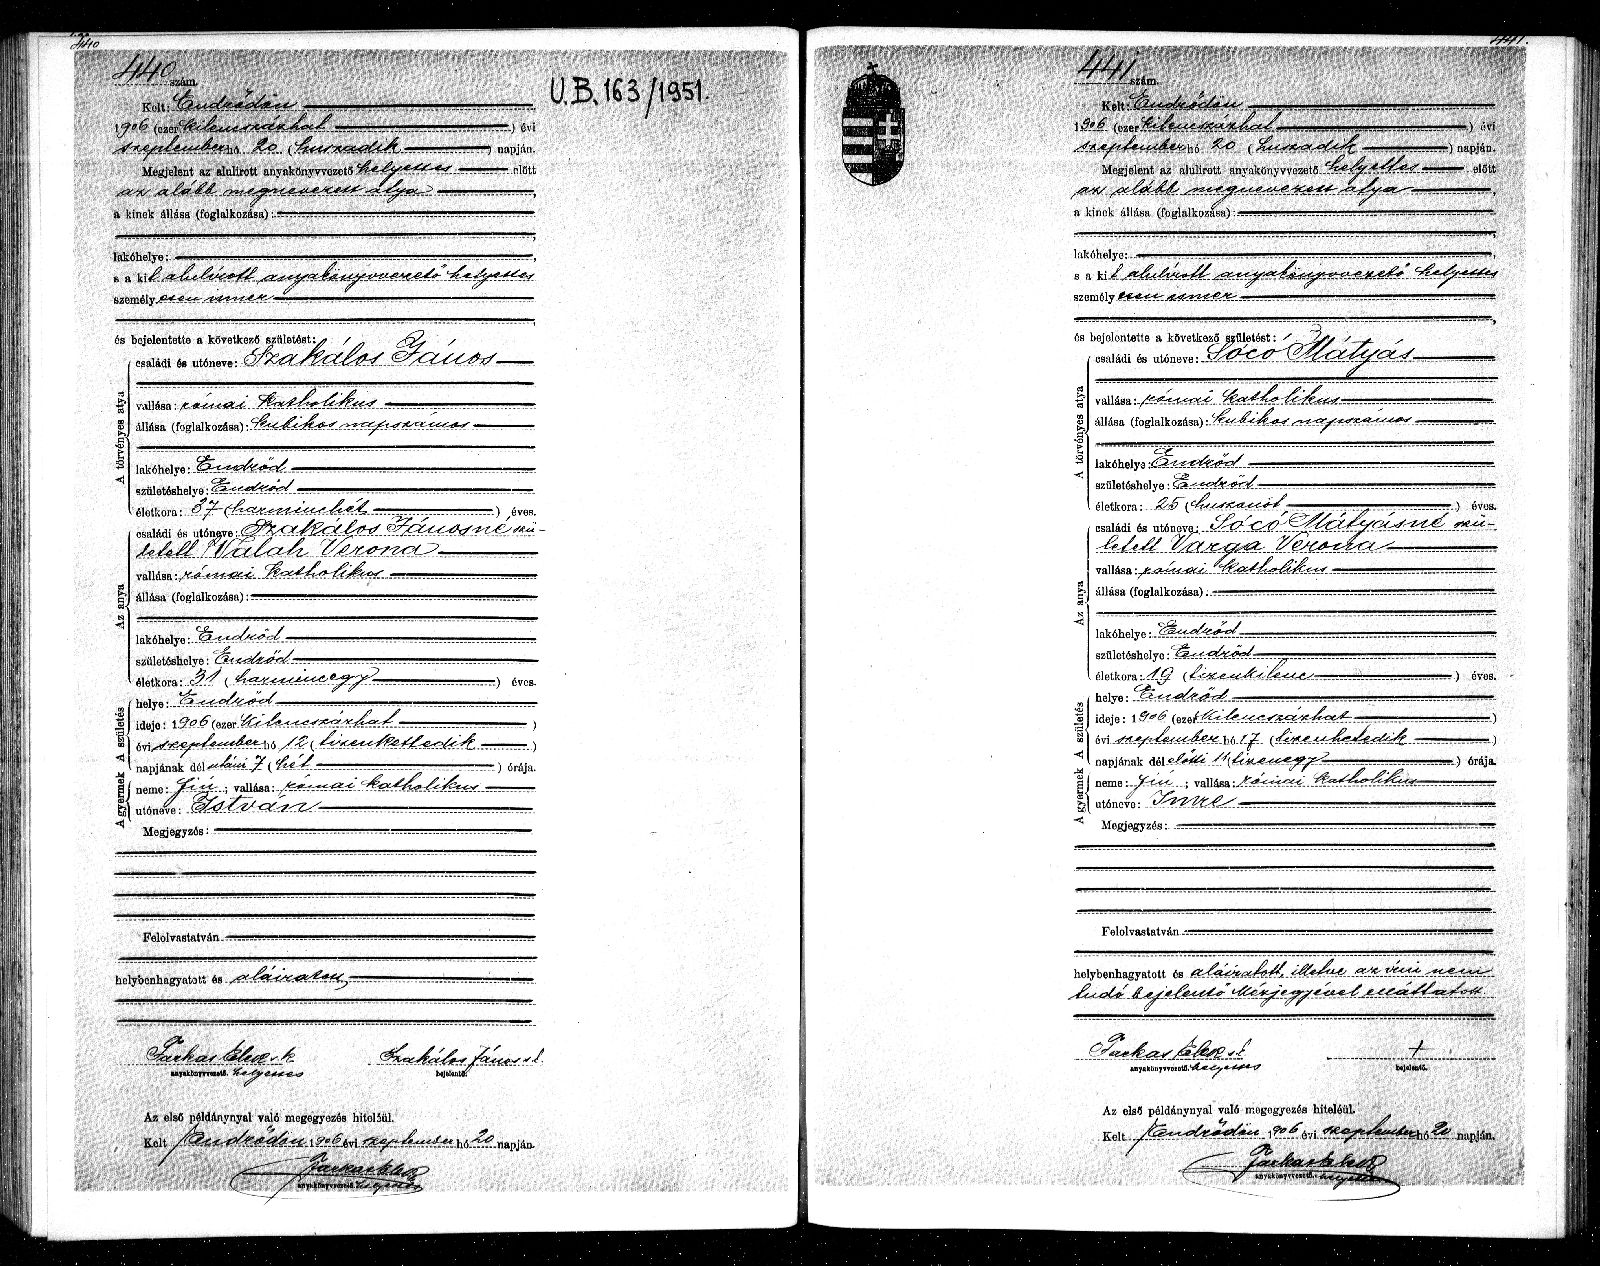 440
440 szám.
U.B. 163/1951.
Kelt: Endrődön
1906 (ezer kilenczszázhat ) évi
szeptember hó 20 (huszadik ) napján.
Megjelent az alulirott anyakönyvvezető helyettes előtt
az alább megnevezett atya ,
a kinek állása (foglalkozása):
,
lakóhelye: ,
s a kit alulírott anyakönyvvezető helyettes
személyesen ismer
,
és bejelentette a következő születést:
A törvényes atya
családi és utóneve: Szakálos János
vallása: római katholikus
állása (foglalkozása): kubikos napszámos
lakóhelye: Endrőd
születéshelye: Endrőd
életkora: 37 (harminchét ) éves.
Az anya
családi és utóneve: Szakálos Jánosné szü-
letett Valah Verona
vallása: római katholikus
állása (foglalkozása):
lakóhelye: Endrőd
születéshelye: Endrőd
életkora: 31 (harminczegy ) éves.
A születés
helye: Endrőd
ideje: 1906 (ezer kilenczszázhat )
évi szeptember hó 12 (tizenkettedik )
napjának dél utáni 7 (hét ) órája.
A gyermek
neme: fiú ; vallása: római katholikus
utóneve: István
Megjegyzés:
Felolvastatván
helybenhagyatott és aláiratott
Farkas Elek s.k. Szakálos János s.k.
anyakönyvvezető. helyettes bejelentő.
Az első példánynyal való megegyezés hiteléül.
Kelt Endrődön 1906 évi szeptember hó 20 napján.
Farkas Elek
anyakönyvvezető. helyettes
441.
441 szám.
Kelt: Endrődön
1906 (ezer kilenczszázhat ) évi
szeptember hó 20 (huszadik ) napján.
Megjelent az alulirott anyakönyvvezető helyettes előtt
az alább megnevezett atya ,
a kinek állása (foglalkozása):
,
lakóhelye: ,
s a kit alulírott anyakönyvvezető helyettes
személyesen ismer
,
és bejelentette a következő születést:
A törvényes atya
családi és utóneve: Sócó Mátyás
vallása: római katholikus
állása (foglalkozása): kubikos napszámos
lakóhelye: Endrőd
születéshelye: Endrőd
életkora: 25 (huszonöt ) éves.
Az anya
családi és utóneve: Sócó Mátyásné szü-
letett Varga Verona
vallása: római katholikus
állása (foglalkozása):
lakóhelye: Endrőd
születéshelye: Endrőd
életkora: 19 (tizenkilenc ) éves.
A születés
helye: Endrőd
ideje: 1906 (ezer kilenczszázhat )
évi szeptember hó 17 (tizenhetedik )
napjának dél előtti 11 (tizenegy ) órája.
A gyermek
neme: fiú ; vallása: római katholikus
utóneve: Imre
Megjegyzés:
Felolvastatván
helybenhagyatott és aláiratott, illetve az írni nem
tudó bejelentő kézjegyével elláttatott
Farkas Elek s.k. +
anyakönyvvezető. helyettes bejelentő.
Az első példánynyal való megegyezés hiteléül.
Kelt Endrődön 1906 évi szeptember hó 20 napján.
Farkas Elek
anyakönyvvezető. helyettes